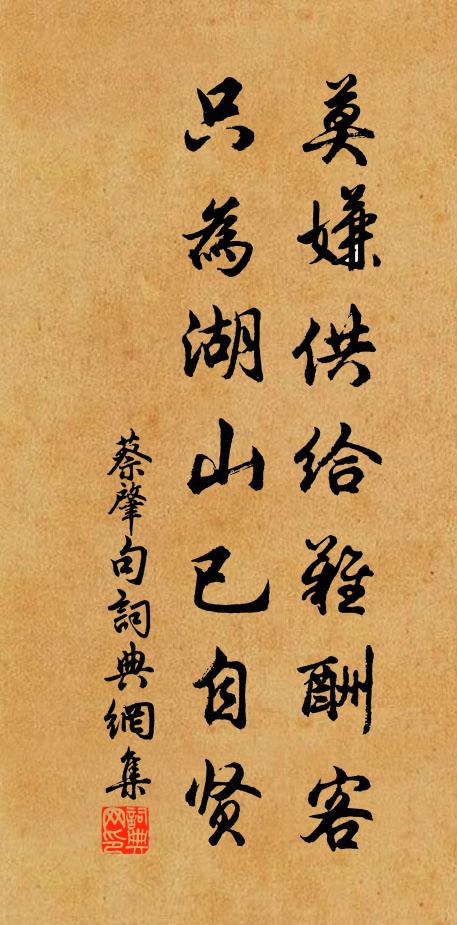 莫嫌供给難酬客
只為湖山已自贤
蔡肇句詞典網集
詞典网印